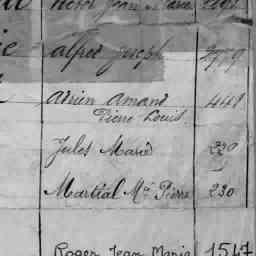 Jean Marie
alfred Joseph
Adrien Amand 449
Pierre Louis
Jules Marie 230
Martial Mie Pierre 230
Roger Jean Marie 1547